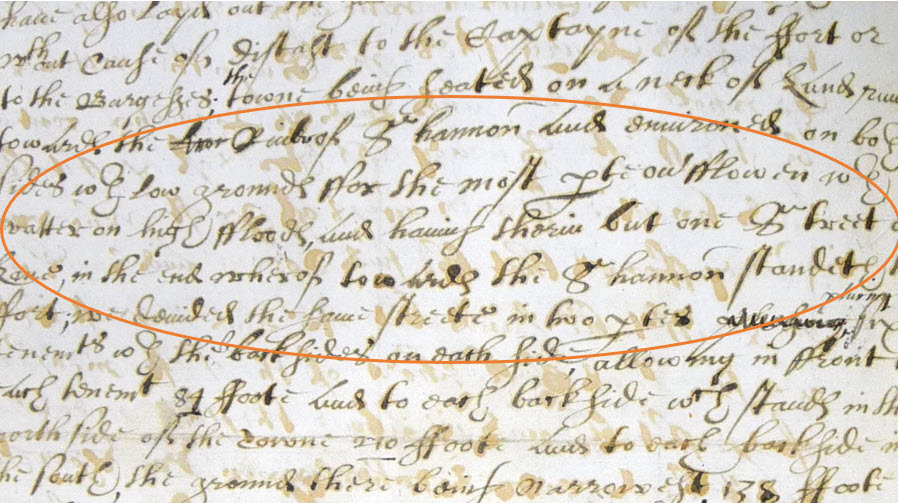 have also layd out the
wth out cause of distast to the Captayne of the ffort or
to the Burgesses; the towne being seated on a neck of Land run
towards the River of Shannon and environed on both
sides wth low grounds ffor the most pte ov'fflowen wth
watter on high ffloods, and having therin but one Street
Lane, in the end wherof towards the Shannon standeth
ffort; we devided the same streete in two ptes six
tenents wth the backsides on each side, allowing in ffront
each tenemt 84 ffoote and to each backside wch stands in the
north side of the Towne 210 ffoote and to each backside in
the south, the ground there being narrowest 178 ffoote